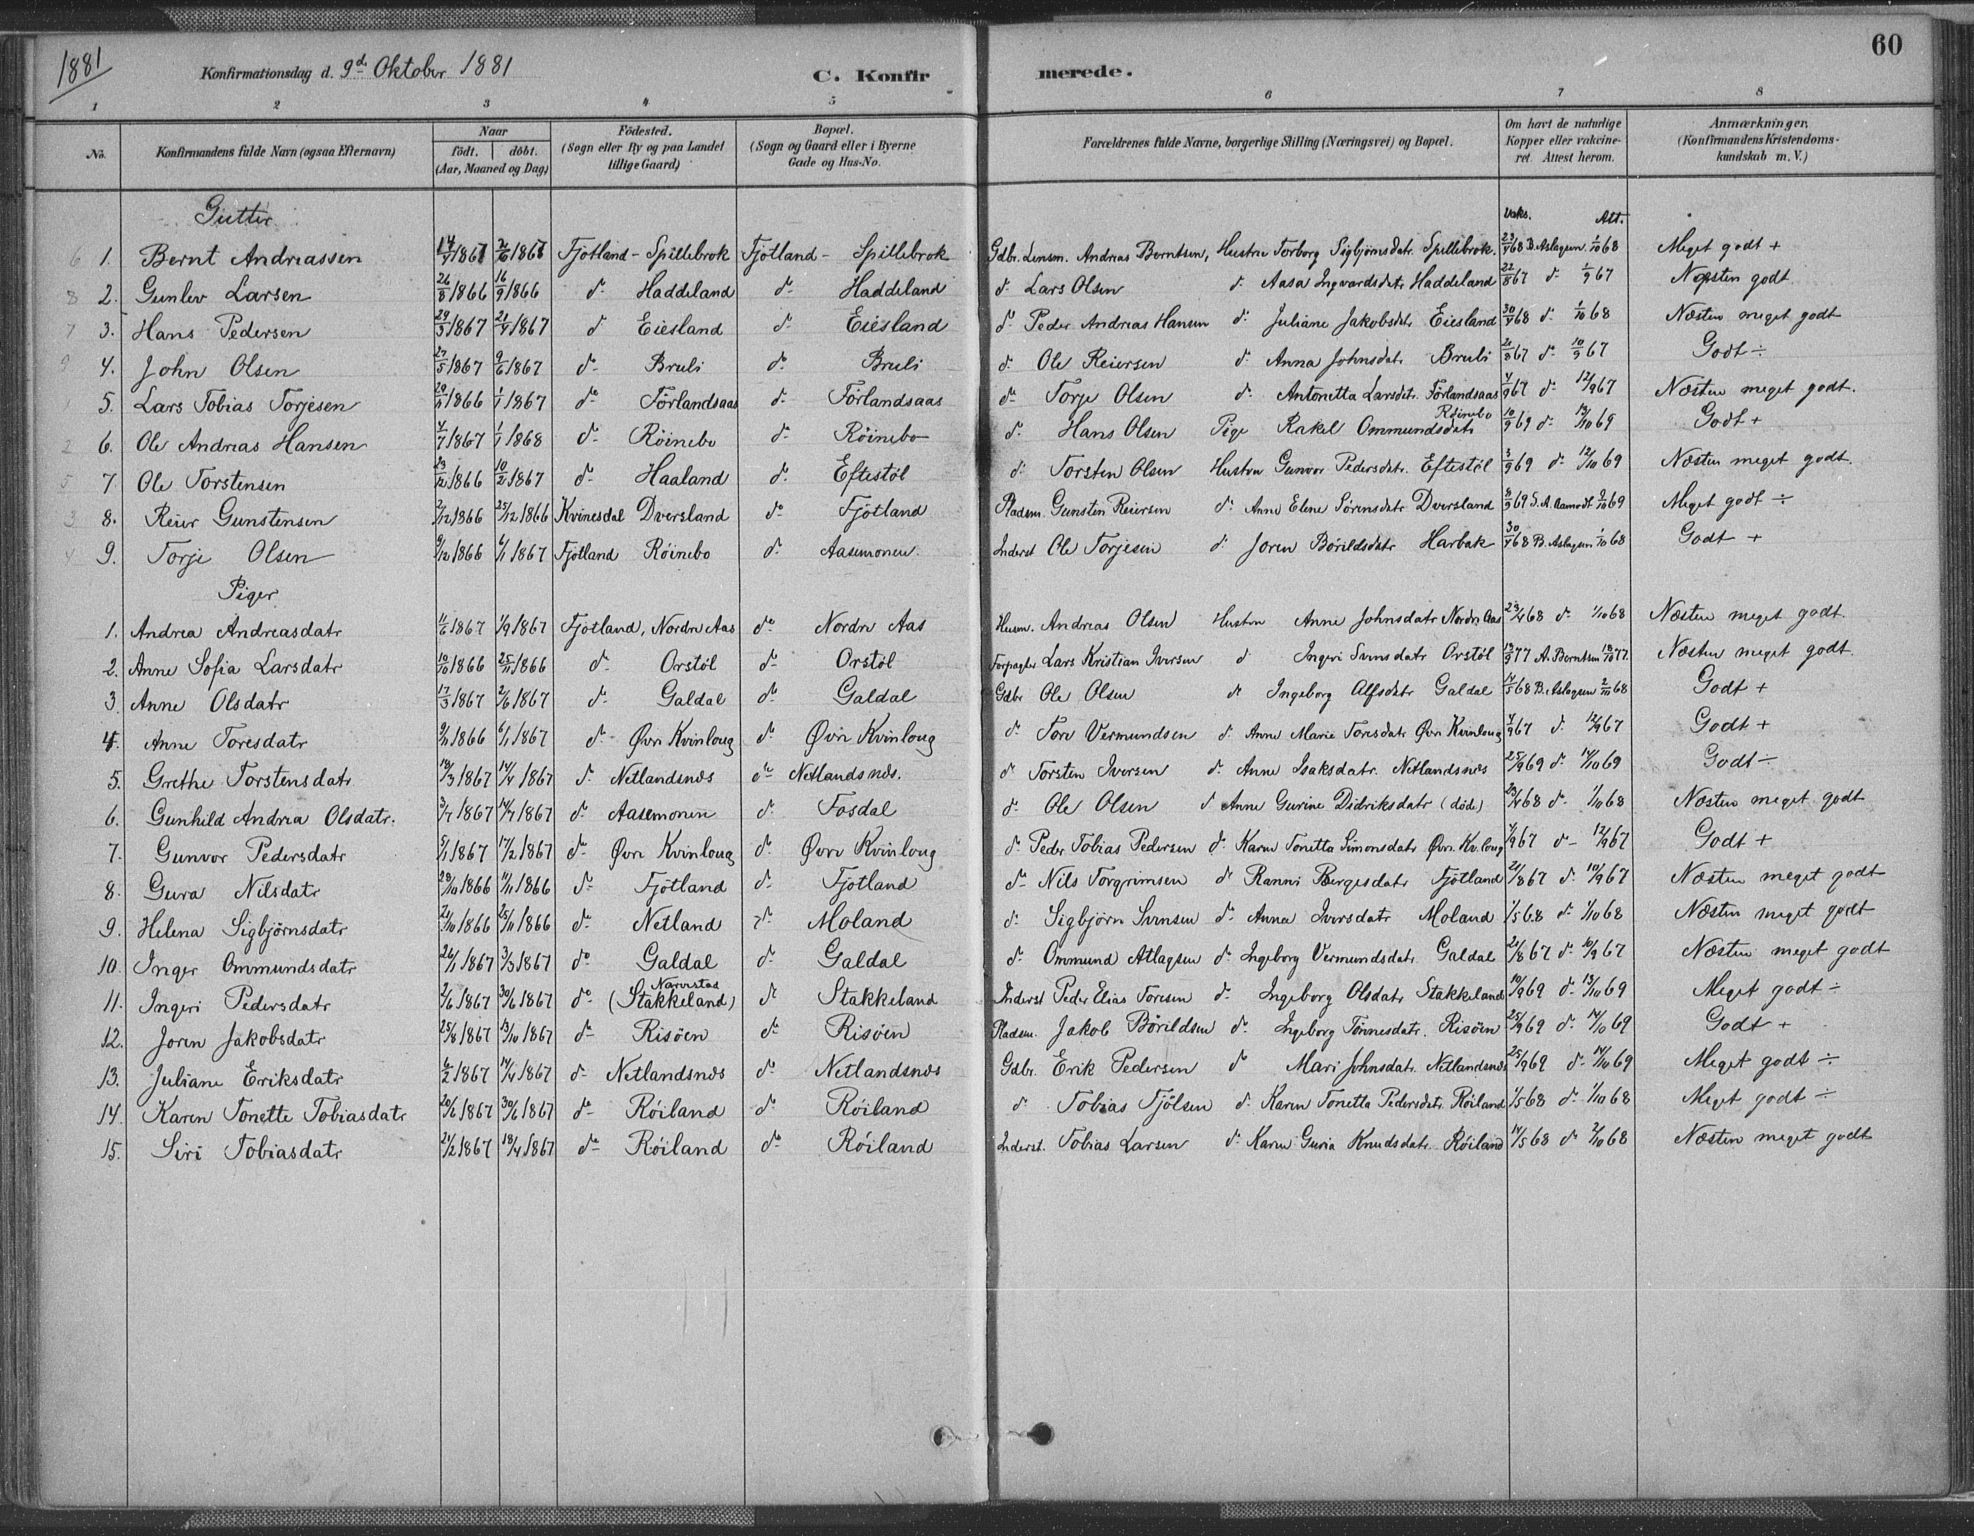 1881
Konfirmationsdag d. 9d Oktober 1881 C. Konfirmerede. 60
1 2 3 4 5 6 7 8
No. Konfirmandens fulde Navn (ogsaa Efternavn) Naar födt. döbt. (Aar, Maaned og Dag.) Födested. (Sogn eller By og paa Landet tillige Gaard.) Bopæl. (Sogn og Gaard eller i Byerne Gade og Hus-No. Forældrenes fulde Navne, borgerlige Stilling (Næringsvei) og Bopæl. Om havt de naturlige Kopper eller vakcineret. Attest herom. Anmærkninger. (Konfirmandens Kristendomskundskab m. V.)
Gutter Vaks. Att.
6 1. Bernt Andreassen 14/7 1867 1867 Fjotland - Spillebrok Fjotland - Spillebrok Gdbr. Lensm. Andreas Berntsen, Hustru Torborg Sigbjørnsdatr. Spillebrok. 23/4 68 B. Aslagsen 1/10 68 Meget godt +
8 2. Gunlev Larsen 26/8 1866 16/9 1866 do Haddeland do Haddeland do Lars Olsen do Aasa Ingvardsdatr Haddeland 22/8 67 do 1/9 67 Næsten godt
7 3. Hans Pedersen 29/3 1867 21/4 1867 do Eiesland do Eiesland do Peder Andreas Hansen do Juliane Jakobsdtr Eiesland 30/4 68 do 1/10 68 Næsten meget godt
9 4. John Olsen 27/5 1867 9/6 1867 do Bruli do Bruli do Ole Reiersen do Anna Johnsdatr Bruli 21/8 67 do 10/9 67 Godt ÷
1 5. Lars Tobias Torjesen 29/11 1866 1/1 1867 do Förlandsaas do Förlandsaas do Torje Olsen do Antonetta Larsdtr. Förlandsaas 4/9 67 do 12/9 67 Næsten meget godt.
2 6. Ole Andreas Hansen 4/7 1867 1/1 1868 do Röinebo do Röinebo do Hans Olsen Pige Rakel Ommundsdatr Röinebo 10/9 69 do 12/10 69 Godt +
5 7. Ole Torstensen 23/12 1866 10/2 1867 do Haaland do Eftestöl do Torsten Olsen Hustru Gunvor Pedersdatr. Eftestöl 3/9 69 do 12/10 69 Næsten meget godt.
3 8. Reier Gunstensen 2/12 1866 25/12 1866 Kvinesdal Dversland do Fjotland Pladsm. Gunsten Reiersen do Anne Elene Sörensdatr Dversland 8/9 69 S. A. Aamodt 9/10 69 Meget godt ÷
4 9. Torje Olsen 9/12 1866 6/1 1867 Fjotland Röinebo do Aasemonen. Inderst Ole Torjesen do Joren Börildsdatr Harbak 30/4 68 B. Aslagsen 1/10 68 Godt +
Piger
1. Andrea Andreasdatr 11/6 1867 1/9 1867 Fjotland, Nordre Aas do Nordre Aas Husm. Andreas Olsen Hustru Anne Johnsdatr Nordre Aas 23/4 68 do 1/10 68 Næsten meget godt.
2. Anne Sofia Larsdatr 10/10 1866 25/11 1866 do Orstöl do Orstöl Forpagter Lars Kristian Iversen do Ingeri Svensdatr Orstöl 13/9 77 A. Berntsen 18/10 77. Næsten meget godt.
3. Anne Olsdatr 17/3 1867 2/6 1867 do Galdal do Galdal Gdbr Ole Olsen do Ingeborg Alfsdatr Galdal 14/5 68 B. Aslagsen 2/10 68 Godt +
4. Anne Toresdatr 9/11 1866 6/1 1867 do Øvre Kvinloug do Øvre Kvinloug do Tore Vermundsen do Anne Marie Toresdatr Øvre Kvinloug 4/9 67 do 12/9 67 Godt +
5. Grethe Torstensdatr 19/3 1867 14/4 1867 do Netlandsnes do Netlandsnes. do Torsten Iversen do Anne Isaksdatr. Netlandsnes 25/9 69 do 14/10 69 Godt ÷
6. Gunhild Andrea Olsdatr. 3/7 1867 14/7 1867 do Aasemonen do Fosdal do Ole Olsen do Anne Gurine Didriksdatr (död) 23/4 68 do 1/10 68 Næsten meget godt
7. Gunvor Pedersdatr 5/1 1867 17/2 1867 do Øvre Kvinloug do Øvre Kvinloug do Peder Tobias Pedersen do Karen Tonetta Simonsdatr Øvre Kv.loug 4/9 67 do 12/9 67 Godt +
8. Gura Nilsdatr 20/10 1866 11/11 1866 do Fjotland do Fjotland do Nils Torgrimsen do Ranni Bergesdatr Fjotland 21/8 67 do 10/9 67 Næsten meget godt
9. Helena Sigbjörnsdatr 21/10 1866 25/11 1866 do Netland do Moland do Sigbjörn Svensen do Anna Iversdatr Moland 1/5 68 do 1/10 68 Næsten meget godt
10. Inger Ommundsdatr 26/1 1867 3/3 1867 do Galdal do Galdal do Ommund Atlagsen do Ingeborg Vermundsdatr. Galdal 21/8 67 do 10/9 67 Næsten meget godt
11. Ingeri Pedersdatr 2/6 1867 30/6 1867 do Narvestad (Stakkeland) do Stakkeland Inderst Peder Elias Toresen do Ingeborg Olsdatr Stakkeland 10/9 69 do 13/10 69 Meget godt ÷
12. Joren Jakobsdatr 25/8 1867 13/10 1867 do Risöen do Risöen Pladsm. Jakob Börildsen do Ingeborg Tönnesdatr. Risöen 25/9 69 do 14/10 69 Godt +
13. Juliane Eriksdatr 6/2 1867 14/4 1867 do Netlandsnes do Netlandsnes Gdbr. Erik Pedersen do Mari Johnsdatr. Netlandsnes 25/9 69 do 14/10 69 Meget godt ÷
14. Karen Tonette Tobiasdatr 20/6 1867 30/6 1867 do Röiland do Röiland do Tobias Fjölsen do Karen Tonetta Pedersdatr. Röiland 1/5 68 do 1/10 68 Meget godt ÷
15. Siri Tobiasdatr 21/2 1867 18/4 1867 do Röiland do Röiland Inderst. Tobias Larsen do Karen Guria Knudsdatr. Röiland 14/5 68 do 2/10 68 Næsten meget godt